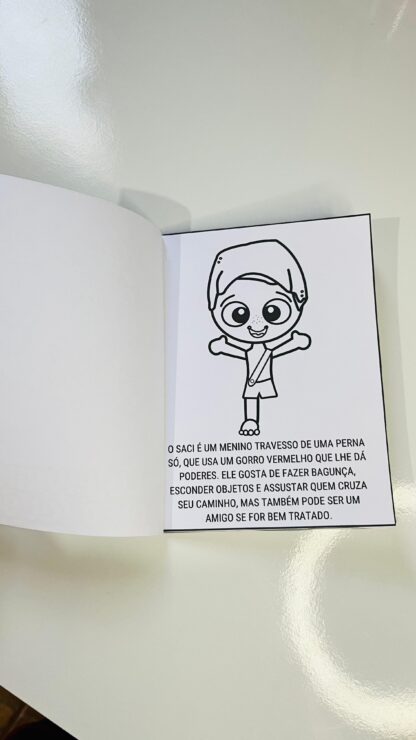 O SACI É UM MENINO TRAVESSO DE UMA PERNA
SÓ, QUE USA UM GORRO VERMELHO QUE LHE DÁ
PODERES. ELE GOSTA DE FAZER BAGUNÇA,
ESCONDER OBJETOS E ASSUSTAR QUEM CRUZA
SEU CAMINHO, MAS TAMBÉM PODE SER UM
AMIGO SE FOR BEM TRATADO.